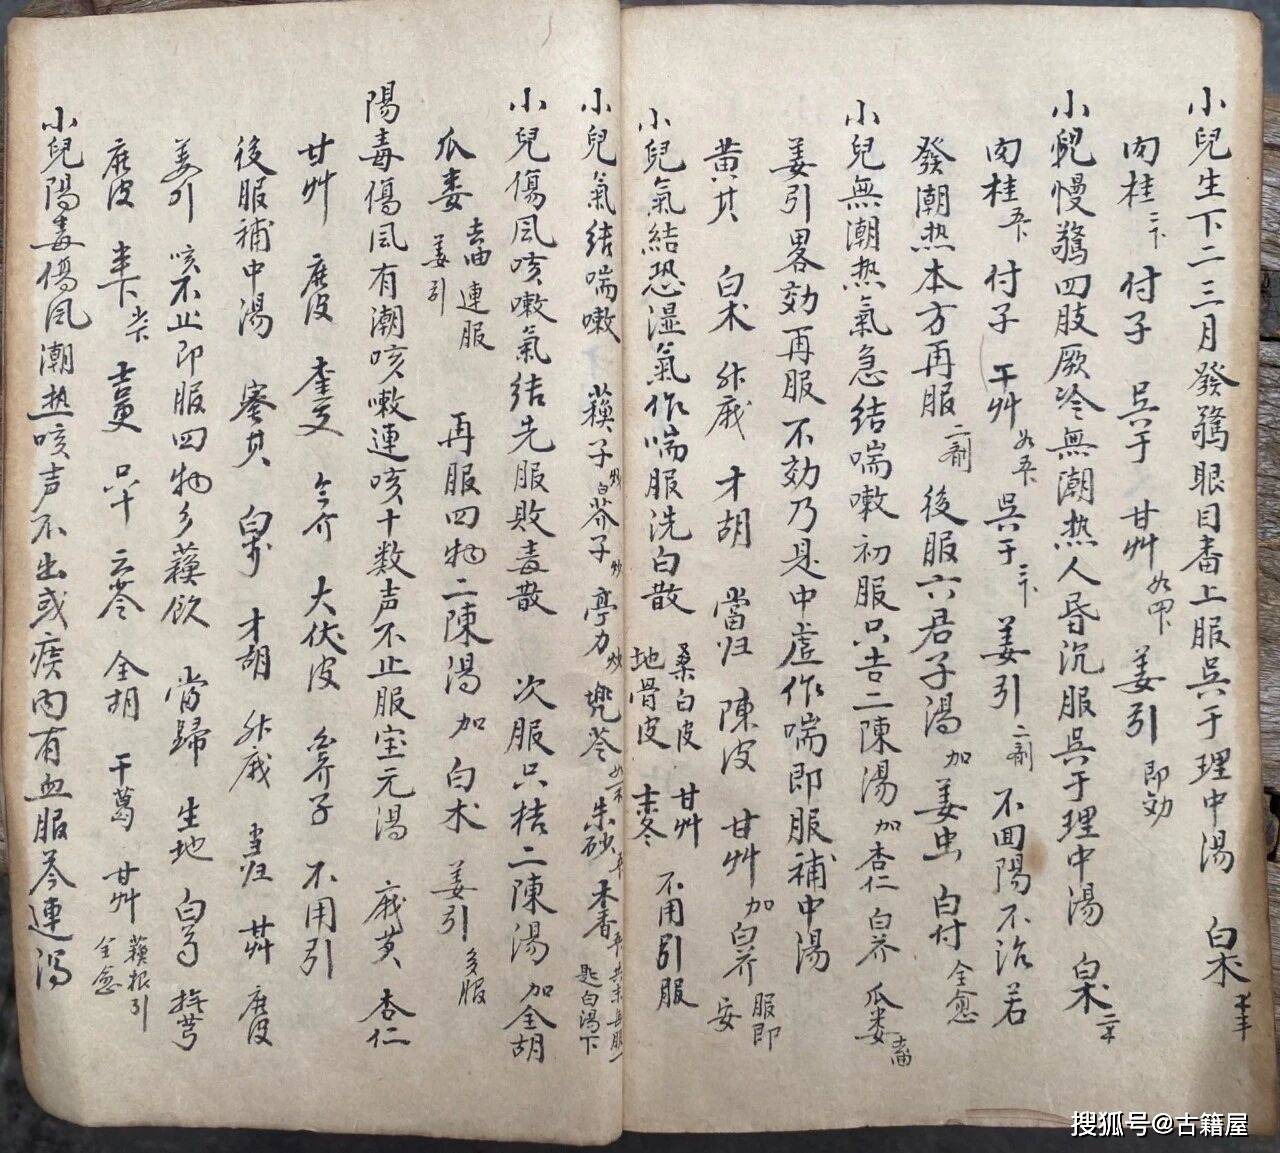 小兒生下二三月發驚眼目畨上服吴于理中湯 白术
肉桂 付子 吴于 甘艸 姜引 即効
小兒慢驚四肢厥冷無潮热人昏沉服吴于理中湯 白术
肉桂 付子 干艸 吴于 姜引 二剤 不囬陽不治若
發潮热本方再服二剤 後服六君子湯加姜虫 白付 全愈
小兒無潮热氣急结喘嗽初服只吉二陳湯加杏仁 白芥 瓜娄
姜引畧効再服不効乃是中虚作喘即服補中湯
黄芪 白术 升麻 才胡 當归 陳皮 甘艸 加白芥 服即安
小兒氣結恐湿氣作喘服洗白散 桑白皮 地骨皮 甘艸 麦冬 不用引服
小兒氣结喘嗽 蘓子炒 白芥子炒 亭力炒 兠苓 朱砂 木香 共末每服一匙白湯下
小兒傷风咳嗽氣结先服败毒散 次服只桔二陳湯加全胡
瓜娄去油 姜引 連服 再服四物二陳湯加白术 姜引 多服
陽毒傷风有潮咳嗽連咳十数声不止服宝元湯 麻黄 杏仁
甘艸 陳皮 大伏皮 不用引
後服補中湯 蜜芪 白术 才胡 升麻 當归 甘艸 陳皮
姜引 咳不止即服四物参蘓飲 當歸 生地 白芍 撫芎
陳皮 半下 只卞 云苓 全胡 干葛 甘艸 蘓根引 全愈
小兒陽毒傷风潮热咳声不出或痰内有血服芩連湯